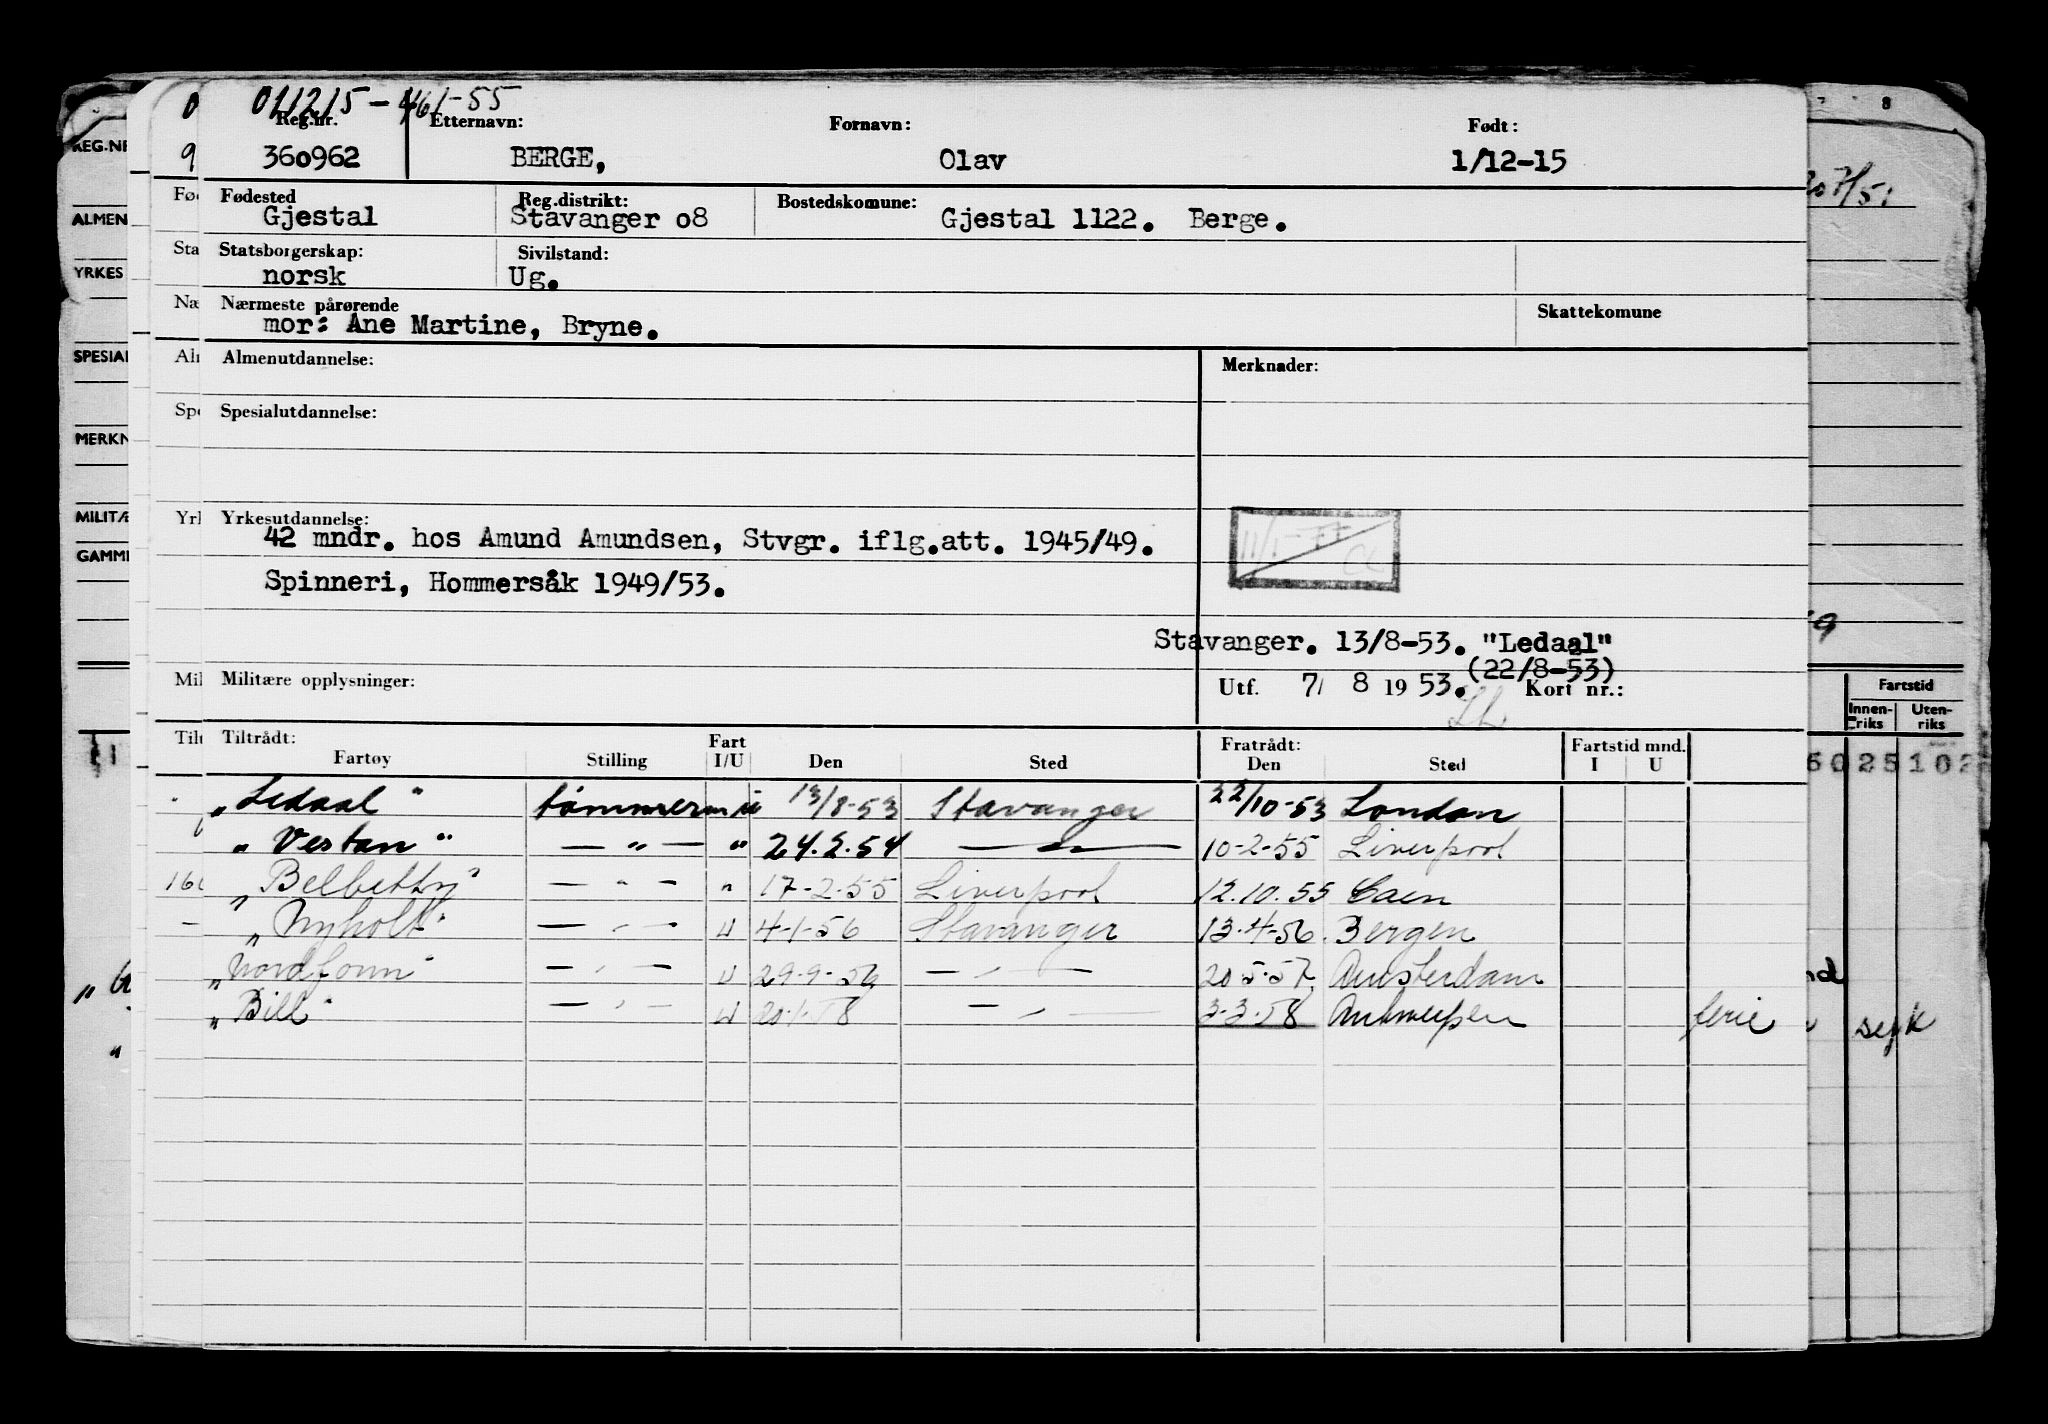 011215-461-55
Reg.nr. Etternavn: Fornavn: Født:
360962 BERGE, Olav 1/12-15
Fødested Reg.distrikt: Bostedskomune:
Gjestal Stavanger o8 Gjestal 1122. Berge.
Statsborgerskap: Sivilstand:
norsk Ug.
Nærmeste pårørende Skattekomune
mor: Ane Martine, Bryne.
Almenutdannelse: Merknader:
Spesialutdannelse:
Yrkesutdannelse:
42 mndr. hos Amund Amundsen, Stvgr. iflg.att. 1945/49.
11/1-77 CL
Spinneri, Hommersåk 1949/53.
Stavanger. 13/8-53. "Ledaal"
(22/8-53)
Militære opplysninger: Utf. 7/ 8 1953. Kort nr.:
Tiltrådt: Fart Fratrådt: Fartstid mnd.
Fartøy Stilling I/U Den Sted Den Sted I U
"Ledaal" tømmerm u 13/8-53 Stavanger 22/10-53 London
"Vestan" — " — " 24.2.54 — " — 10-2-55 Liverpool
"Belbetty" — " — " 17-2-55 Liverpool 12.10.55 Caen
"Nyholt" — " — U 4-1-56 Stavanger 13-4-56. Bergen
"Nordfonn" — " — U 29-9-56 — " — 20-5-57. Amsterdam
"Bill" — " — U 20-1-58 — " — 3-3-58 Antwerpen ferie
REG.NR
ALMEN
YRKES
SPESIAL
MERKN
MILITÆ
GAMME
8
Fartstid
Innenriks Utenriks
6025102
segk